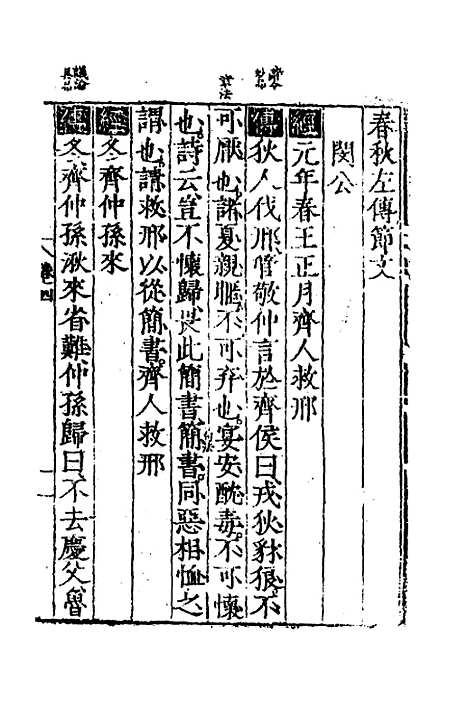 春秋左傳節文
閔公
經元年春王正月齊人救邢
傳狄人伐邢管敬仲言於齊侯曰戎狄豺狼不
可厭也諸夏親暱不可弃也宴安酖毒不可懷
也詩云豈不懷歸畏此簡書簡書同惡相恤之
謂也請救邢以從簡書齊人救邢
經冬齊仲孫來
傳冬齊仲孫湫來省難仲孫歸曰不去慶父魯
卷四
章法
議論